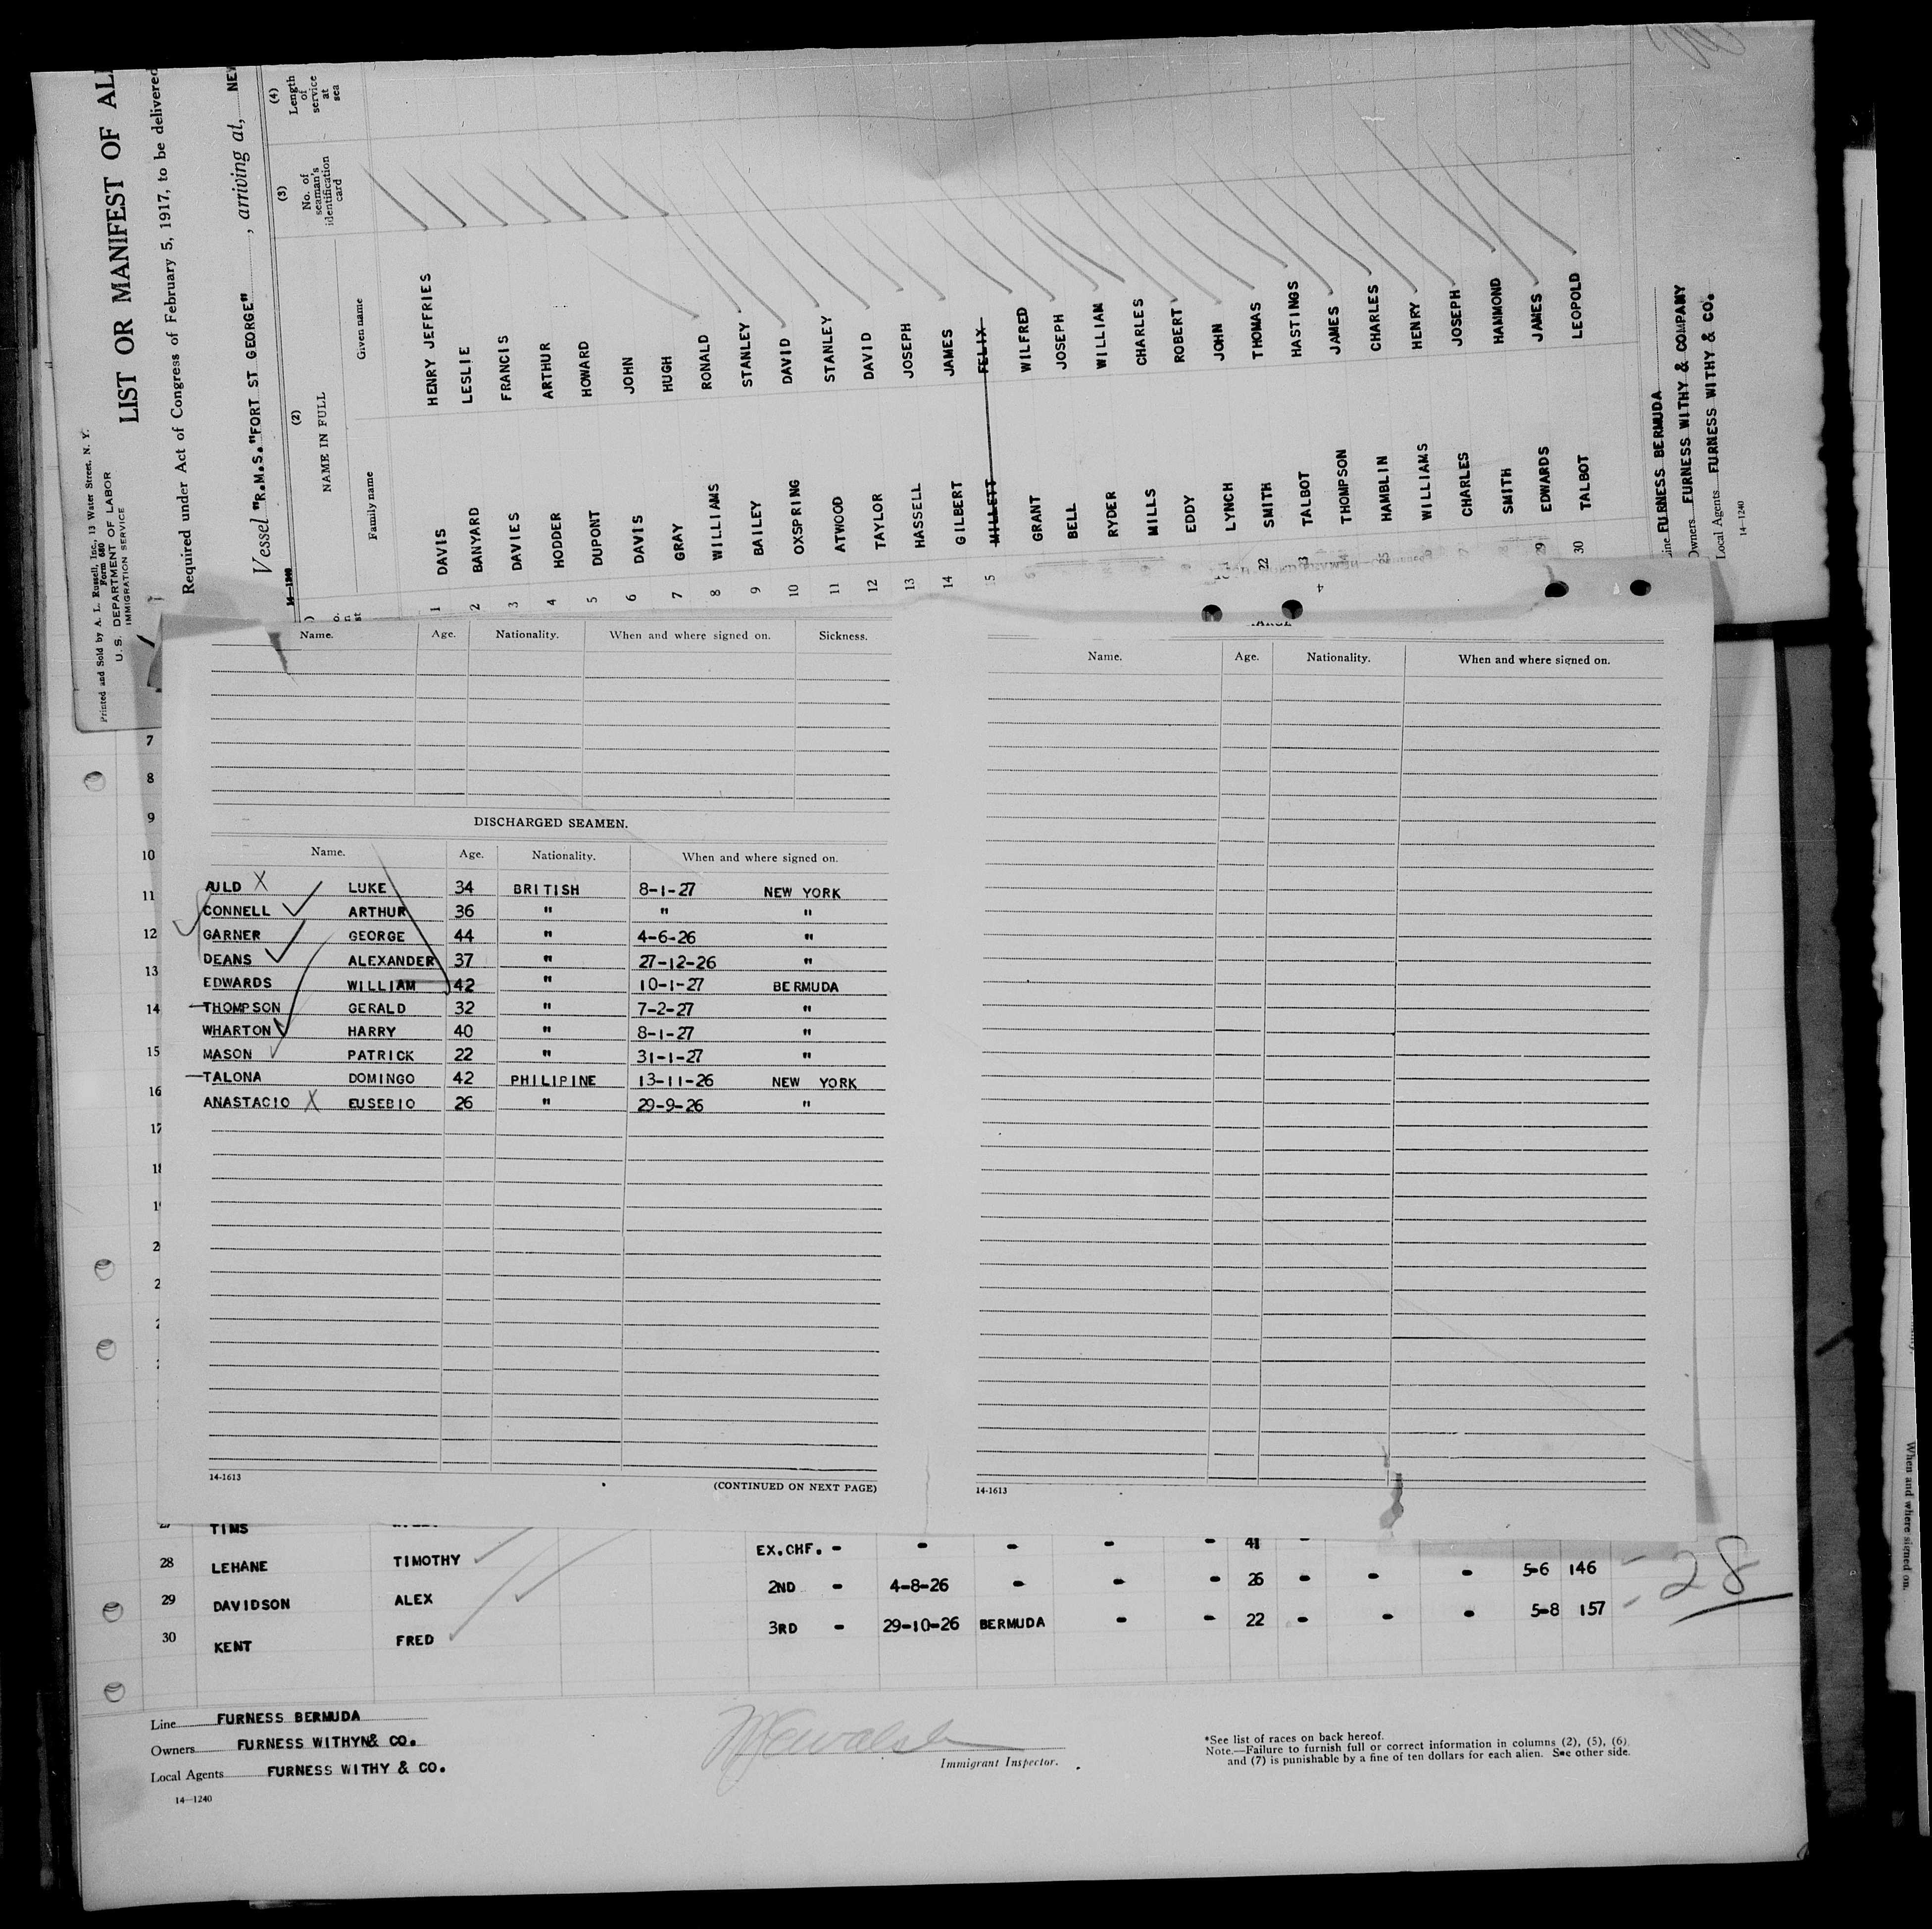 Printed and Sold by A. L. Russell, Inc., 13 Water Street, N. Y.
Form 680
U. S. DEPARTMENT OF LABOR
IMMIGRATION SERVICE
LIST OR MANIFEST OF AL
Required under Act of Congress of February 5, 1917, to be delivered
Vessel "R.M.S."FORT ST GEORGE" , arriving at, NEW
14—1240
(2) (3) (4)
NAME IN FULL
No. of seaman's identification card
Length of service at sea
Family name Given name
1 DAVIS HENRY JEFFRIES
2 BANYARD LESLIE
3 DAVIES FRANCIS
4 HODDER ARTHUR
5 DUPONT HOWARD
6 DAVIS JOHN
7 GRAY HUGH
8 WILLIAMS RONALD
9 BAILEY STANLEY
10 OXSPRING DAVID
11 ATWOOD STANLEY
12 TAYLOR DAVID
13 HASSELL JOSEPH
14 GILBERT JAMES
15 MILLETT FELIX
GRANT WILFRED
BELL JOSEPH
RYDER WILLIAM
MILLS CHARLES
EDDY ROBERT
LYNCH JOHN
22 SMITH THOMAS
23 TALBOT HASTINGS
THOMPSON JAMES
25 HAMBLIN CHARLES
WILLIAMS HENRY
CHARLES JOSEPH
SMITH HAMMOND
29 EDWARDS JAMES
30 TALBOT LEOPOLD
Line FURNESS BERMUDA
Owners FURNESS WITHY & COMPANY
Local Agents FURNESS WITHY & CO.
14—1240
Name. Age. Nationality. When and where signed on. Sickness.
7
8
9
10
11
12
13
14
15
16
17
DISCHARGED SEAMEN.
Name. Age. Nationality. When and where signed on.
AULD X LUKE 34 BRITISH 8-1-27 NEW YORK
CONNELL ARTHUR 36 " " "
GARNER GEORGE 44 " 4-6-26 "
DEANS ALEXANDER 37 " 27-12-26 "
EDWARDS WILLIAM 42 " 10-1-27 BERMUDA
THOMPSON GERALD 32 " 7-2-27 "
WHARTON HARRY 40 " 8-1-27 "
MASON PATRICK 22 " 31-1-27 "
TALONA DOMINGO 42 PHILIPINE 13-11-26 NEW YORK
ANASTACIO X EUSEBIO 26 " 29-9-26 "
14-1613
(CONTINUED ON NEXT PAGE)
Name. Age. Nationality. When and where signed on.
14-1613
TIMS
EX.CHF. - - - - - 41 -
28 LEHANE TIMOTHY 2ND - 4-8-26 - - - 26 - - - 5-6 146
29 DAVIDSON ALEX 3RD - 29-10-26 BERMUDA - - 22 - - - 5-8 157
30 KENT FRED
28
Line FURNESS BERMUDA
Owners FURNESS WITHYN& CO.
Local Agents FURNESS WITHY & CO.
14—1240
Immigrant Inspector.
*See list of races on back hereof.
Note.—Failure to furnish full or correct information in columns (2), (5), (6)
and (7) is punishable by a fine of ten dollars for each alien. See other side.
When and where signed on.